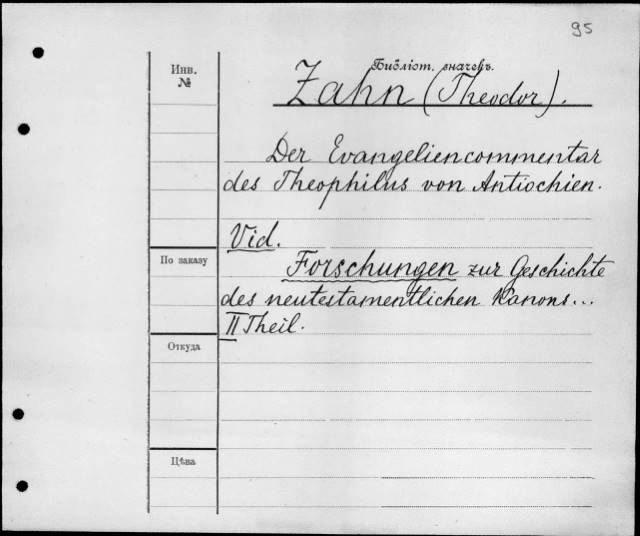 95
Библіот. значекъ.
Инв.
№
Zahn (Theodor).
Der Evangeliencommentar
des Theophilus von Antiochien.
Vid.
По заказу
Forschungen zur Geschichte
des neutestamentlichen Kanons...
II Theil.
Откуда
Цѣна